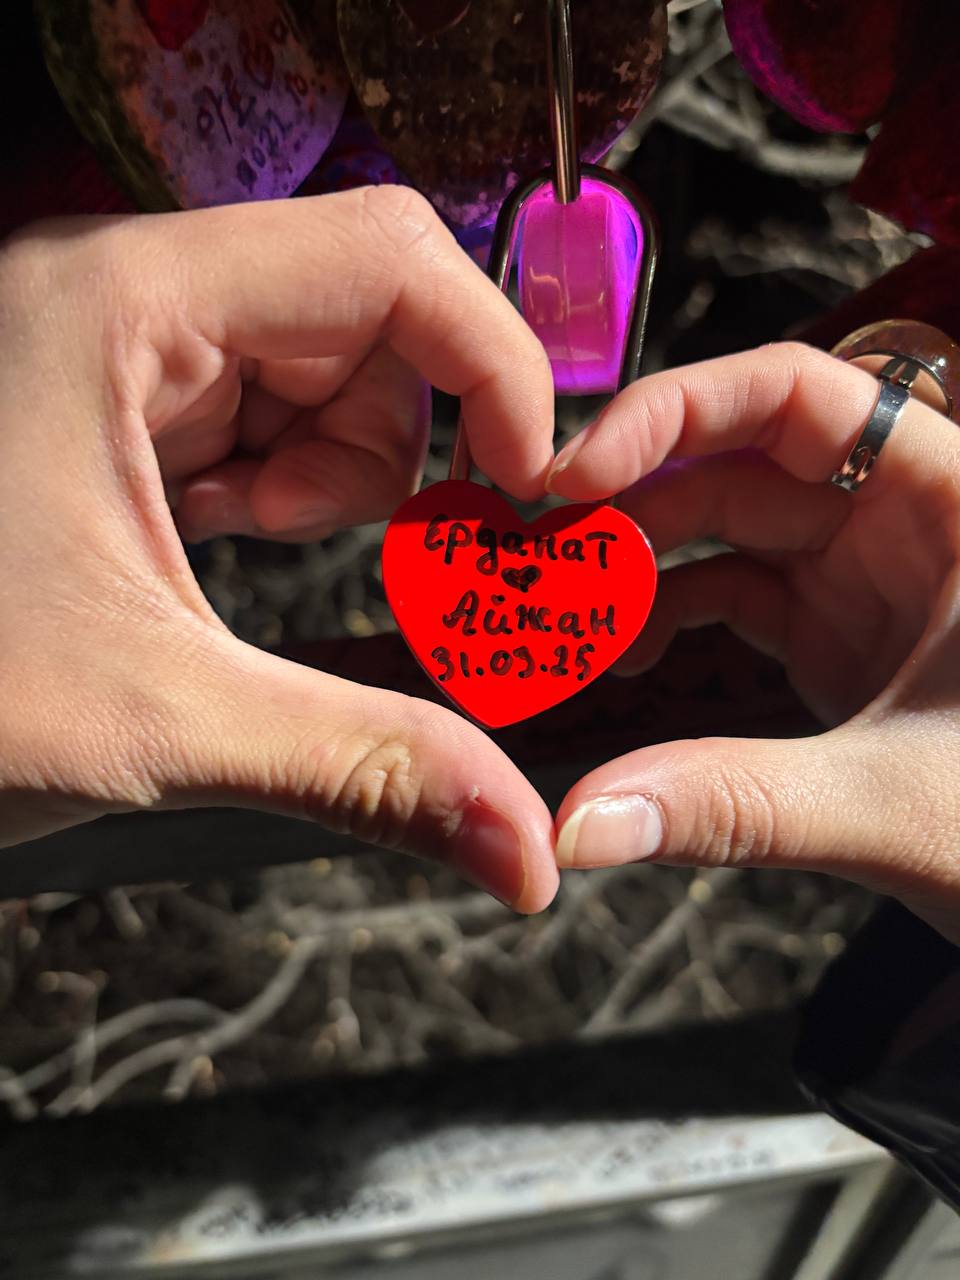 Ерданат
❤
Айжан
31.03.25
2021